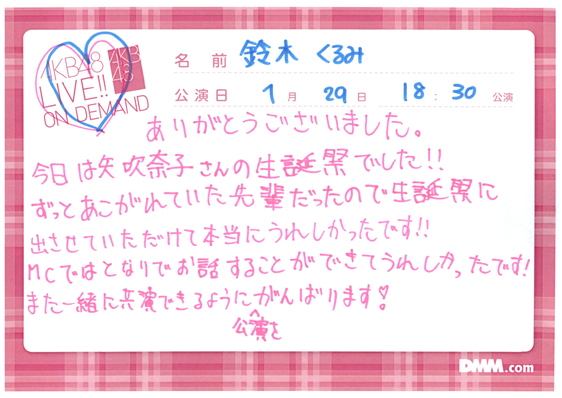 AKB48
LIVE!!
ON DEMAND
AKB
48
名 前 鈴木 くるみ
公演日 1月 29日 18:30 公演
ありがとうございました。
今日は矢吹奈子さんの生誕祭でした!!
ずっとあこがれていた先輩だったので生誕祭に
出させていただけて本当にうれしかったです!!
MCではとなりでお話することができてうれしかったです!
また一緒に共演できるようにがんばります♡!
公演を
DMM.com